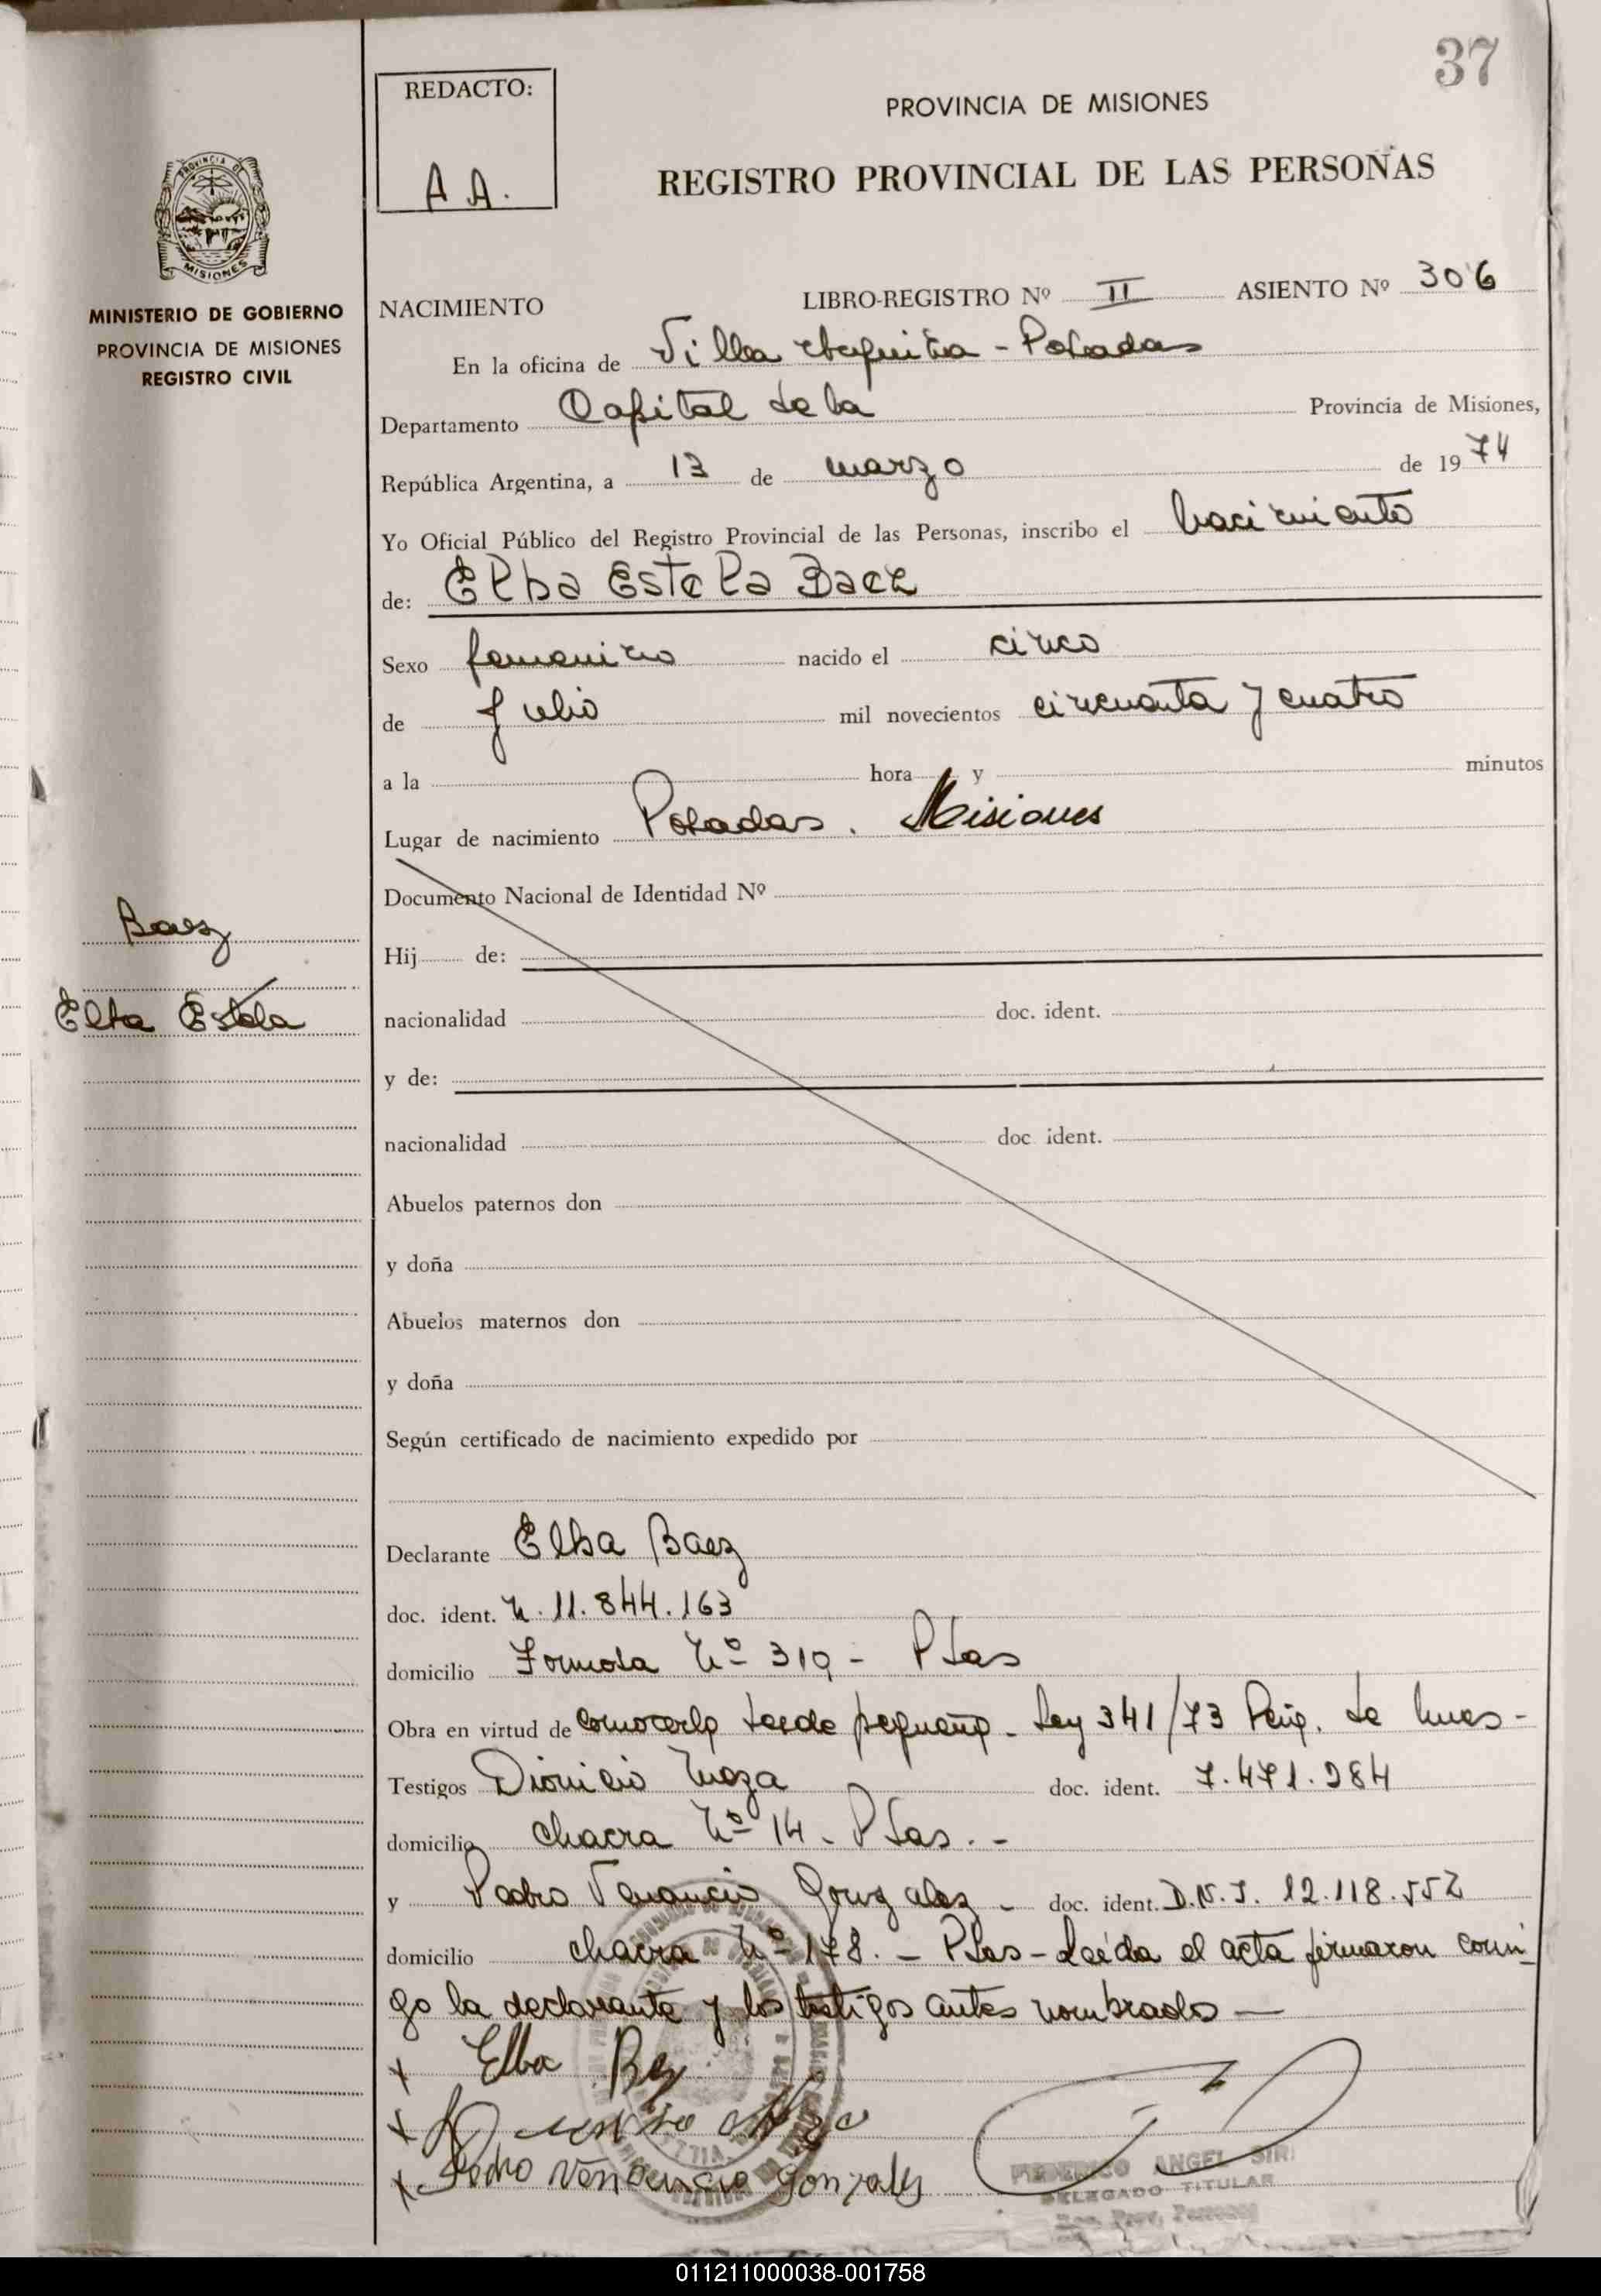 37
REDACTO:
A A.
PROVINCIA DE MISIONES
REGISTRO PROVINCIAL DE LAS PERSONAS
PROVINCIA DE
MISIONES
MINISTERIO DE GOBIERNO
PROVINCIA DE MISIONES
REGISTRO CIVIL
NACIMIENTO LIBRO-REGISTRO Nº II ASIENTO Nº 306
En la oficina de Villa Urquiza - Posadas
Departamento Capital de la Provincia de Misiones,
República Argentina, a 13 de marzo de 1974
Yo Oficial Público del Registro Provincial de las Personas, inscribo el nacimiento
de: Elba Estela Baez
Sexo femenino nacido el cinco
de Julio mil novecientos cincuenta y cuatro
a la hora y minutos
Lugar de nacimiento Posadas. Misiones
Documento Nacional de Identidad Nº
Baez
Hij de:
Elba Estela
nacionalidad doc. ident.
y de:
nacionalidad doc. ident.
Abuelos paternos don
y doña
Abuelos maternos don
y doña
Según certificado de nacimiento expedido por
Declarante Elba Baez
doc. ident. N. 11.844.163
domicilio Formosa Nº 319 - Psas
Obra en virtud de conocerlo desde pequeño - Ley 341/73 de
Testigos Dionicio Meza doc. ident. 7.471.284
domicilio chacra Nº 14 - Psas. -
y Pedro Venancio Gonzalez - doc. ident. D.N.I. 12.118.552
domicilio chacra Nº 178. - Psas - Leída el acta firmaron conmi-
go la declarante y los testigos antes nombrados —
x Elba Bez
x Dionisio Meza
x Pedro Venancio Gonzalez
FEDERICO ANGEL SIRI
DELEGADO TITULAR
Reg. Prov. Personas
011211000038-001758